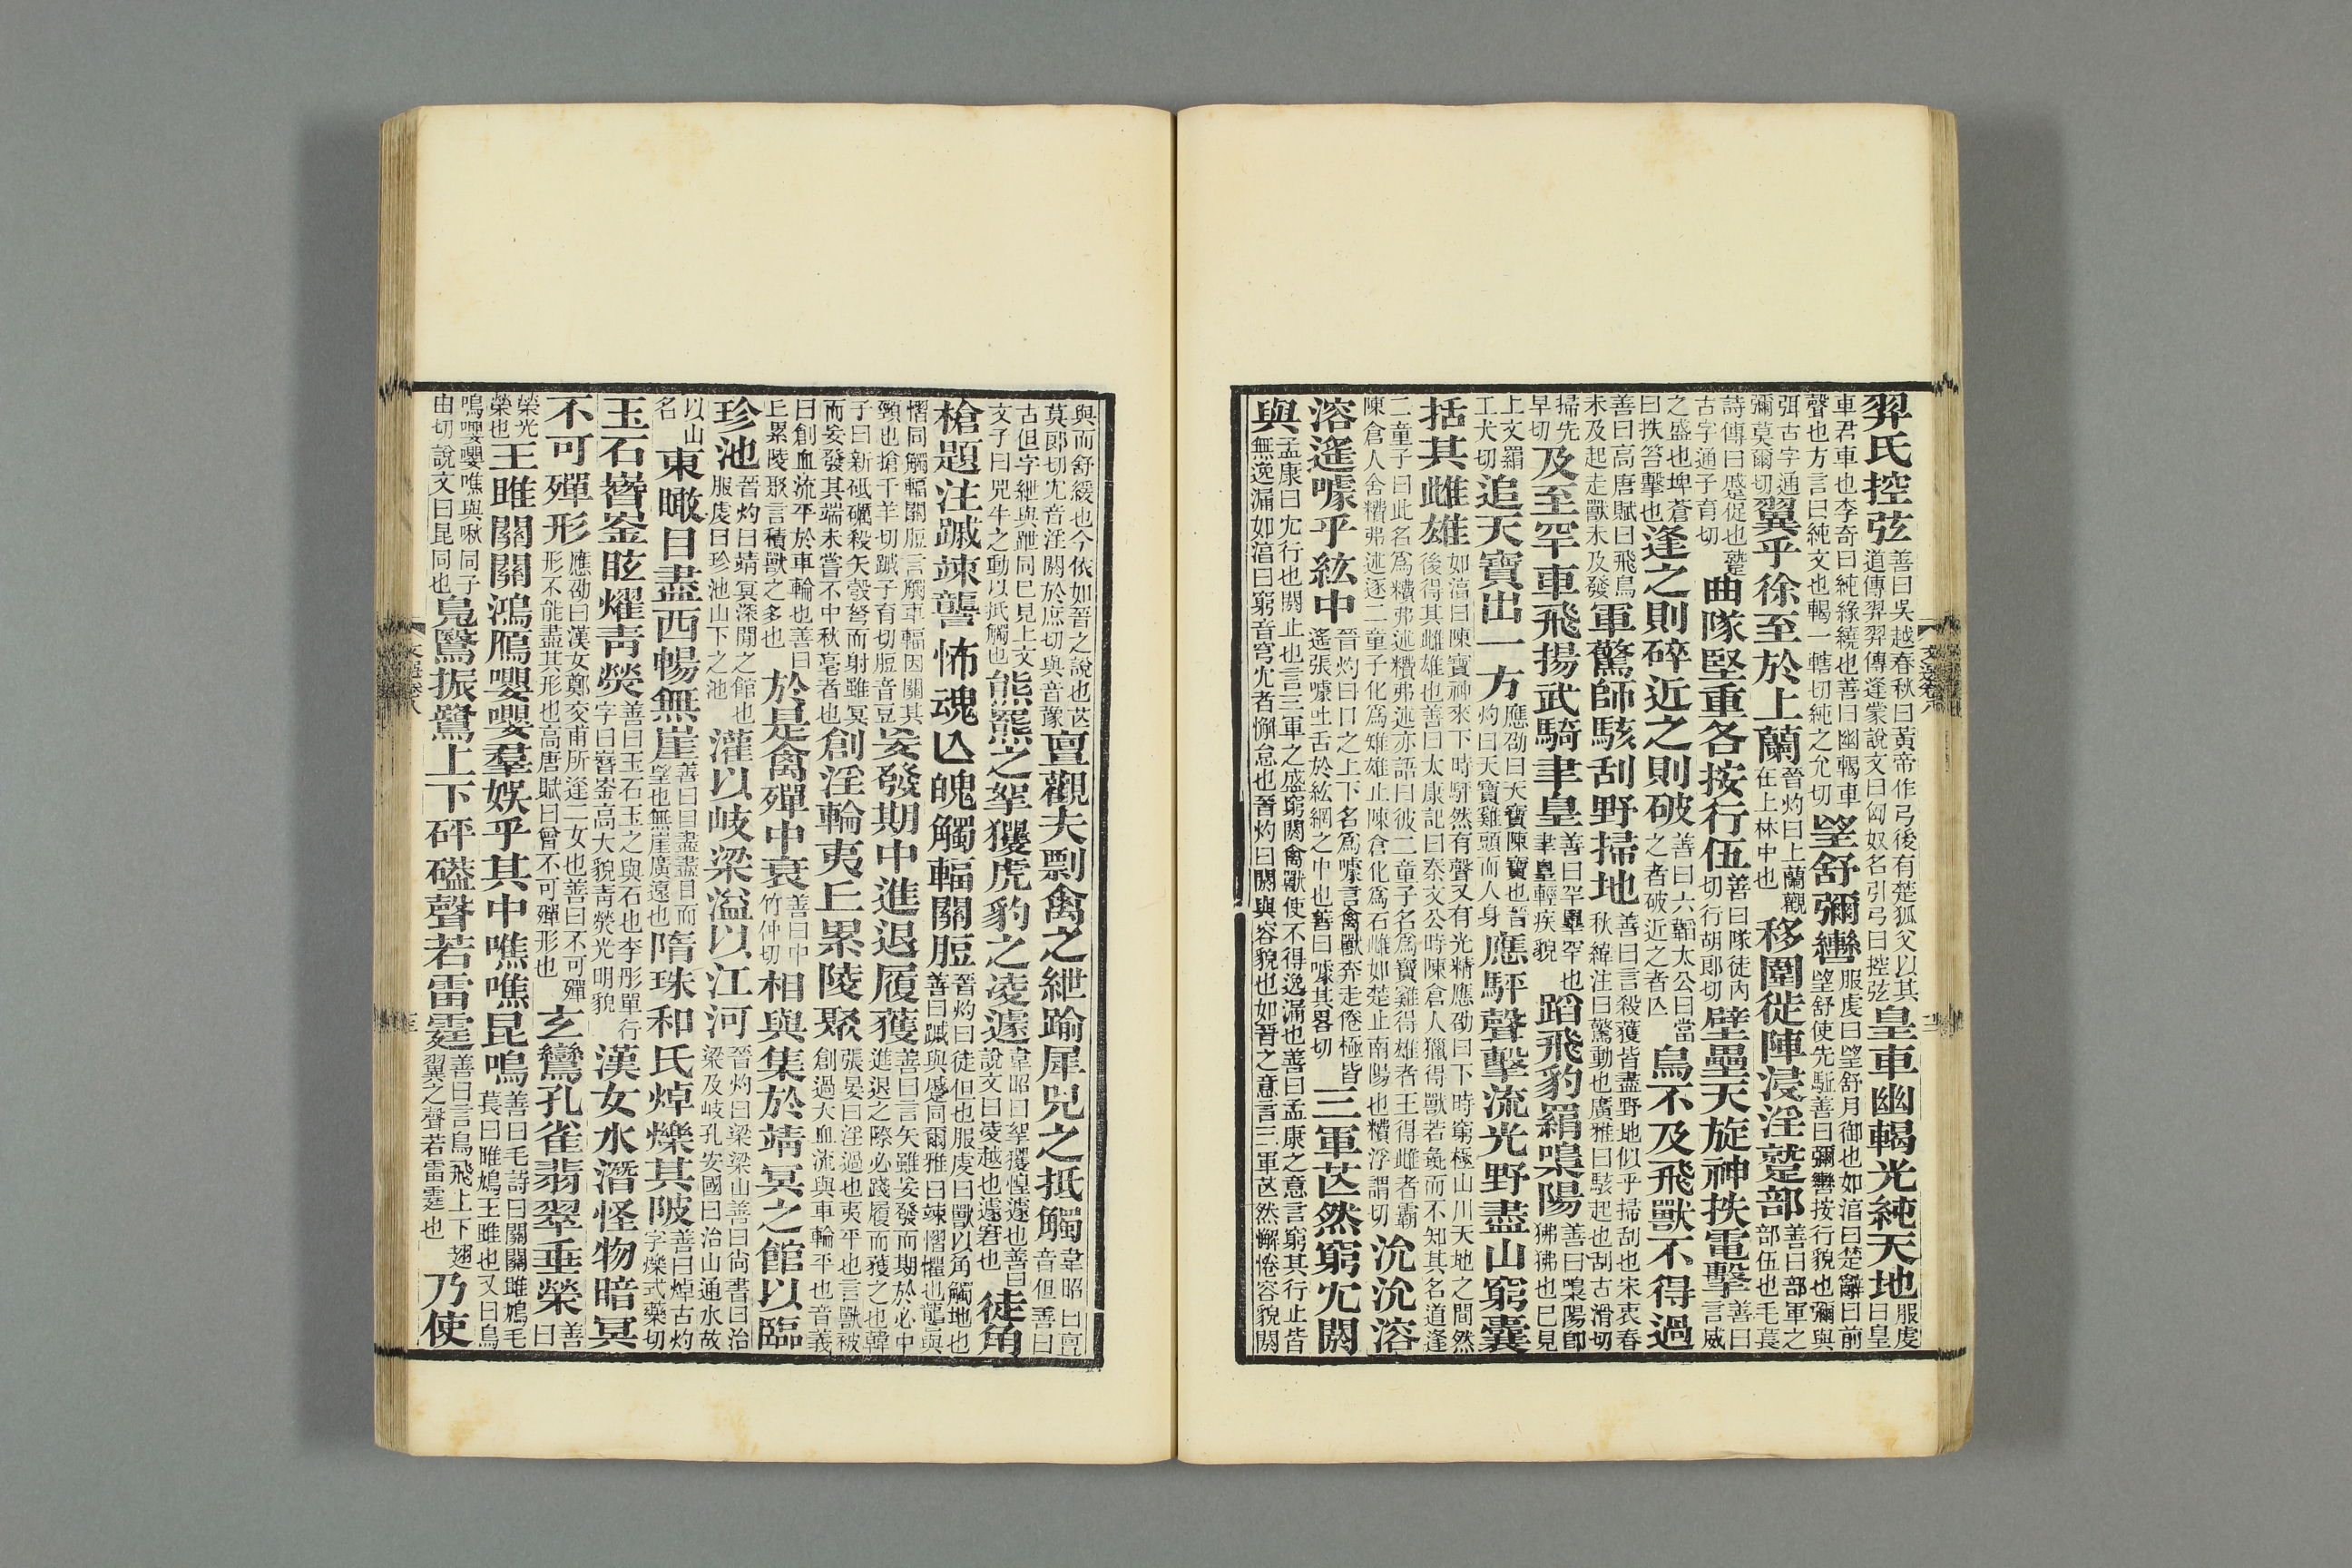 羿氏控弦善曰吳越春秋曰黃帝作弓後有楚狐父以其道傳羿羿傳逢蒙說文曰匈奴名引弓曰控弦皇車幽輵光純天地服虔曰皇
車君車也李奇曰純緣繞也善曰幽輵車聲也方言曰純文也輵一轄切純之允切望舒彌轡服虔曰望舒月御也如淳曰楚辭曰前望舒使先驅善曰彌轡按行貌也彌與
弭古字通彌莫爾切翼乎徐至於上蘭晉灼曰上蘭觀在上林中也移圍徙陣浸淫蹵部善曰部軍之部伍也毛萇
詩傳曰蹙促也蹵古字通子育切曲隊堅重各按行伍善曰隊徒內切行胡郎切壁壘天旋神抶電擊善曰言威
之盛也埤蒼曰抶笞擊也逢之則碎近之則破善曰六韜太公曰當之者破近之者亾鳥不及飛獸不得過
善曰高唐賦曰飛鳥未及起走獸未及發軍驚師駭刮野掃地善曰言殺獲皆盡野地似乎掃刮也宋衷春秋緯注曰驚動也廣雅曰駭起也刮古滑切
掃先早切及至罕車飛揚武騎聿皇善曰罕畢罕也聿皇輕疾貌蹈飛豹羂噪陽善曰噪陽卽狒狒也已見
上文羂工犬切追天寶出一方應劭曰天寶陳寶也晉灼曰天寶雞頭而人身應駍聲擊流光野盡山窮囊
括其雌雄如淳曰陳寶神來下時駍然有聲又有光精應劭曰下時窮極山川天地之間然後得其雌雄也善曰太康記曰秦文公時陳倉人獵得獸若彘而不知其名道逢
二童子曰此名爲弗述弗述亦語曰彼二童子名爲寶雞得雄者王得雌者霸陳倉人舍弗述逐二童子化爲雉雄止陳倉化爲石雌如楚止南陽也浮謂切沇沇溶
溶遙噱乎紘中晉灼曰口之上下名爲噱言禽獸奔走倦極皆遙張噱吐舌於紘網之中也善曰噱其畧切三軍芒然窮冘閼
與孟康曰冘行也閼止也言三軍之盛窮閼禽獸使不得逸漏也善曰孟康之意言窮其行止皆無逸漏如淳曰窮音穹冘者懈怠也晉灼曰閼與容貌也如晉之意言三軍芒然懈倦容貌閼
與而舒緩也今依如晉之說也芒莫郎切冘音淫閼於庶切與音豫亶觀夫剽禽之紲踰犀兕之抵觸韋昭曰亶音但善曰
古但字紲與跇同已見上文文子曰兕牛之動以抵觸也熊羆之挐攫虎豹之凌遽韋昭曰挐攫惶遽也善曰說文曰夌越也遽窘也徒角
槍題注蹴竦讋怖魂亾魄觸輻關脰晉灼曰徒但也服虔曰獸以角觸地也善曰蹴與蹙同爾雅曰竦慴懼也讋與
慴同觸輻關脰言觸車輻因關其頸也搶千羊切蹴子育切脰音豆妄發期中進退履獲善曰言矢雖妄發而期於必中進退之際必踐履而獲之也韓
子曰新砥礪殺矢彀弩而射雖冥而妄發其端未嘗不中秋毫者也創淫輪夷丘累陵聚張晏曰淫過也夷平也言獸被創過大血流與車輪平也音義
曰創血流平於車輪也善曰丘累陵聚言積獸之多也於是禽殫中衰善曰中竹仲切相與集於靖冥之館以臨
珍池晉灼曰靖冥深閒之館也服虔曰珍池山下之池灌以岐梁溢以江河晉灼曰梁梁山善曰尙書曰治梁及岐孔安國曰治山通水故
以山名東瞰目盡西暢無崖善曰目盡盡目而望也無崖廣遠也隋珠和氏焯爍其陂善曰焯古灼字爍式藥切
玉石嶜崟眩燿靑熒善曰玉石玉之與石也李彤單行字曰嶜崟高大貌靑熒光明貌漢女水潛怪物暗冥
不可殫形應劭曰漢女鄭交甫所逢二女也善曰不可殫形不能盡其形也高唐賦曰曾不可殫形也玄鸞孔雀翡翠垂榮善曰
榮光榮也王雎關關鴻鴈嚶嚶羣娛乎其中噍噍昆鳴善曰毛詩曰關關雎鳩毛萇曰雎鳩王雎也又曰鳥
鳴嚶嚶噍與啾同子由切說文曰昆同也鳧鷖振鷺上下砰磕聲若雷霆善曰言鳥飛上下翅翼之聲若雷霆也乃使